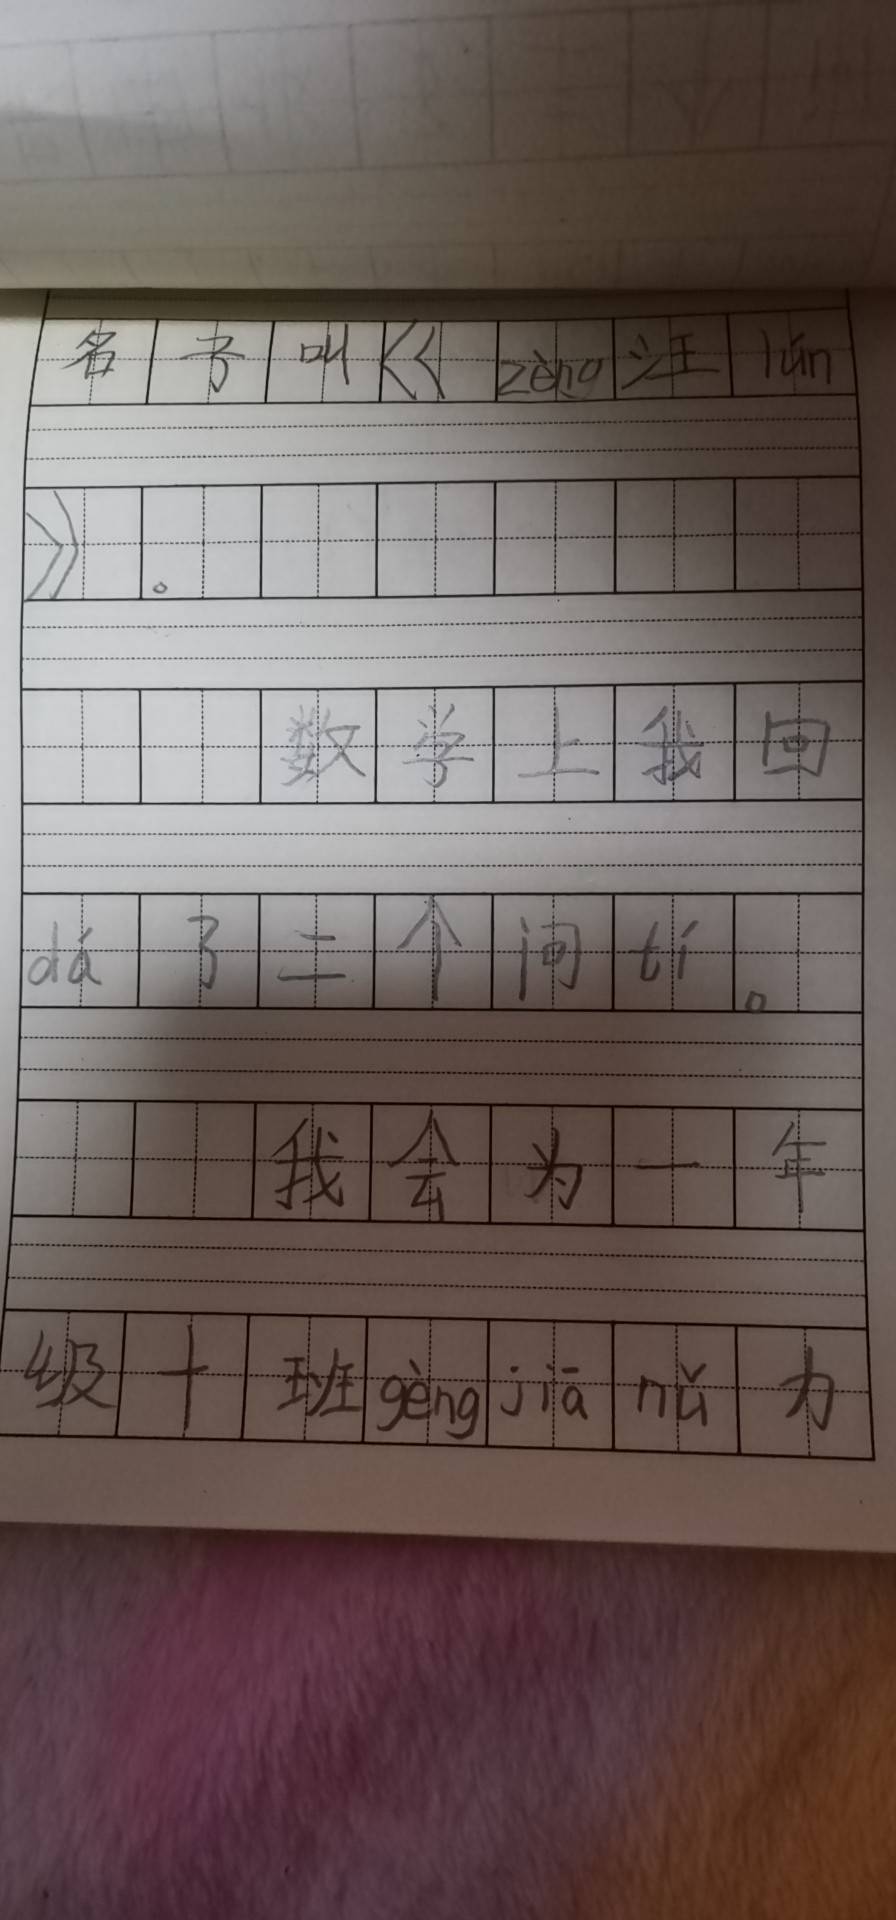 名子叫《zèng汪lún
》。
数学上我回
dá了二个问tí。
我会为一年
级十班gèngjiānǔ力